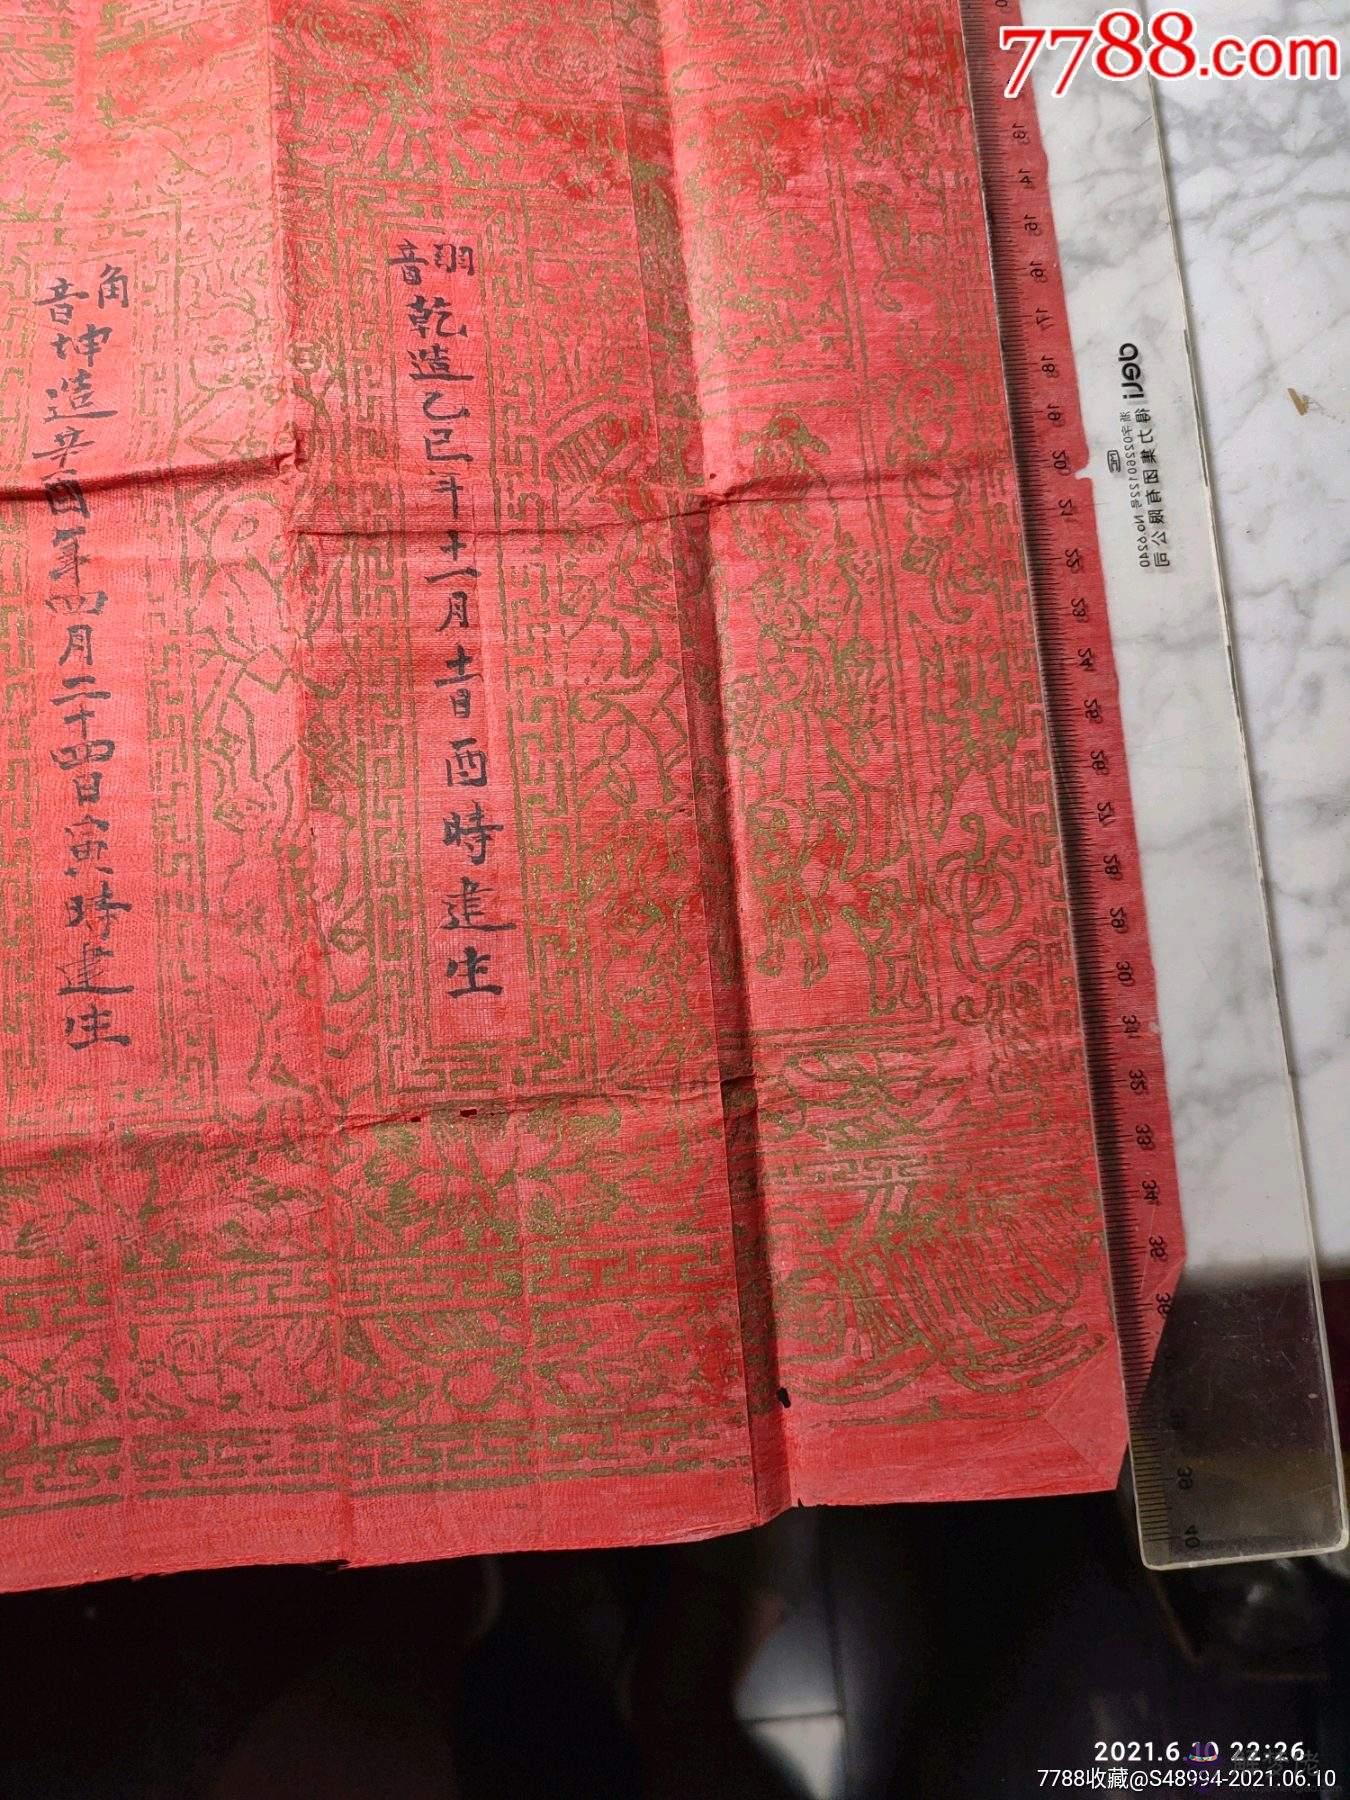 7788.com
羽音乾造乙巳年十一月十一日酉時建生
角音坤造辛酉年四月二十四日寅時建生
deli
No.6240
2021.6.10 22:26
7788收藏@S48994-2021.06.10